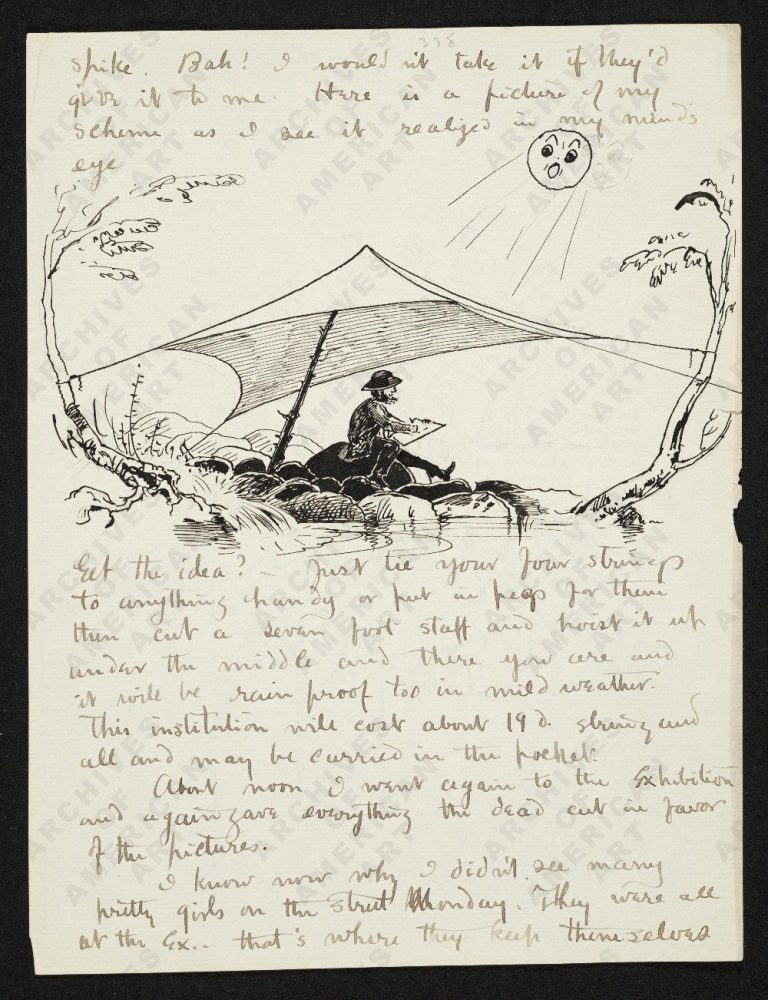 338
spike. Bah! I would nt take it if they'd
give it to me. Here is a picture of my
scheme as I see it realized in my minds
eye
Get the idea? — Just tie your four strings
to anything handy or put in pegs for them
then cut a seven foot staff and hoist it up
under the middle and there you are and
it will be rain proof too in mild weather.
This institution will cost about 19 d. string and
all and may be carried in the pocket.
About noon I went again to the Exhibition
and again gave everything the dead cut in favor
of the pictures.
I know now why I didn't see many
pretty girls on the street Monday. They were all
at the Ex.. that's where they keep themselves
ARCHIVES OF AMERICAN ART